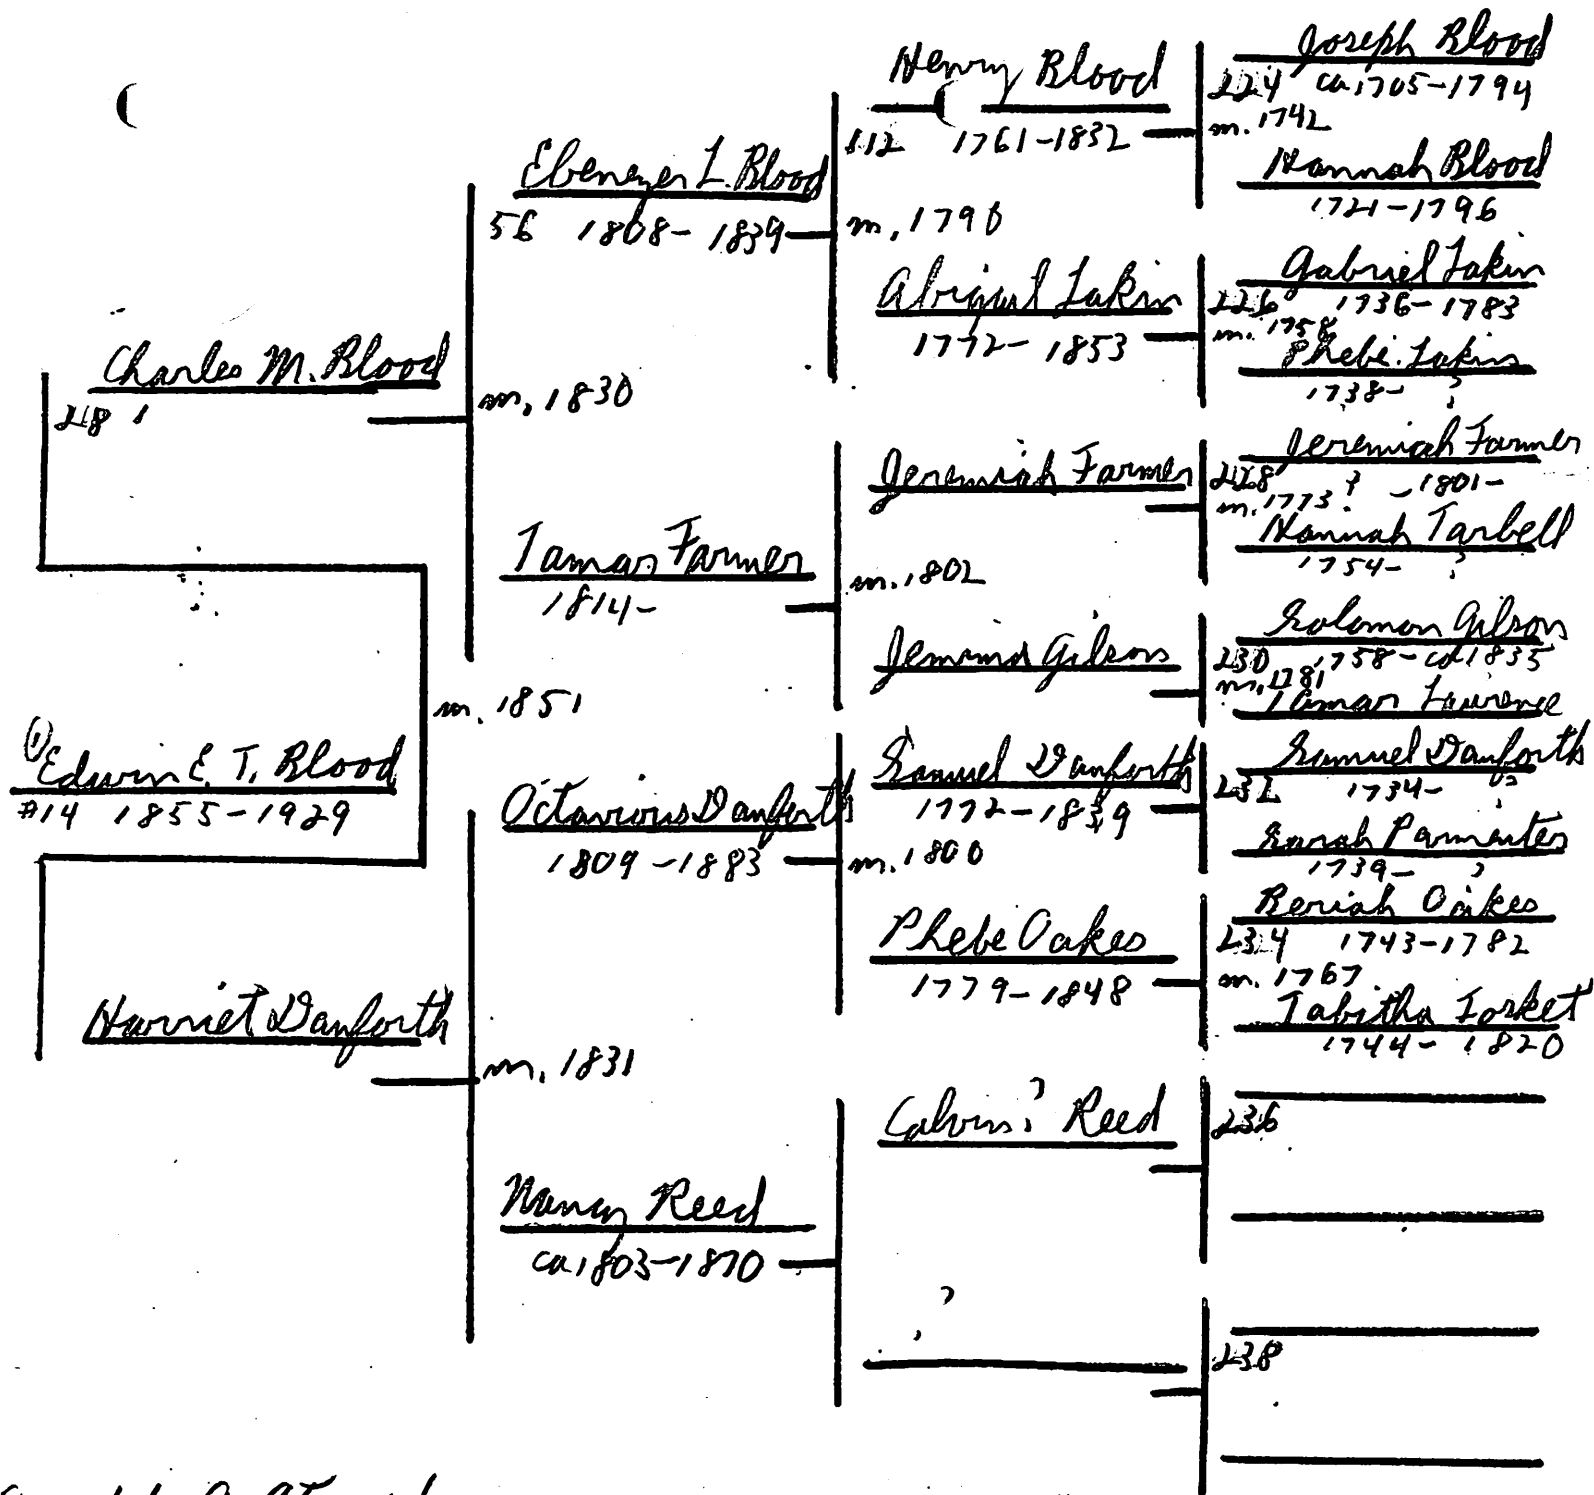 Charles M. Blood
28 1
m. 1851
① Edwin E. T. Blood
#14 1855-1929
Harriet Danforth
Ebenezer L. Blood
56 1808-1839
m. 1830
Tamar Farmer
1814-
Octavious Danforth
1809-1883
m. 1831
Nancy Reed
ca 1803-1870
Henry Blood
112 1761-1832
m. 1790
Abigail Lakin
1772-1853
Jeremiah Farmer
m. 1802
Jemima Gilson
Samuel Danforth
1772-1839
m. 1800
Phebe Oakes
1779-1848
Calvin? Reed
?
Joseph Blood
224 ca 1705-1794
m. 1742
Hannah Blood
1721-1796
Gabriel Lakin
226 1736-1783
m. 1758
Phebe Lakin
1738- ?
Jeremiah Farmer
228 ? -1801-
m. 1773
Hannah Tarbell
1754- ?
Solomon Gilson
230 1758-ca 1835
m. 1781
Tamar Lawrence
Samuel Danforth
232 1734- ?
Sarah Parmenter
1739- ?
Beriah Oakes
234 1743-1782
m. 1767
Tabitha Fosket
1744-1820
236
238